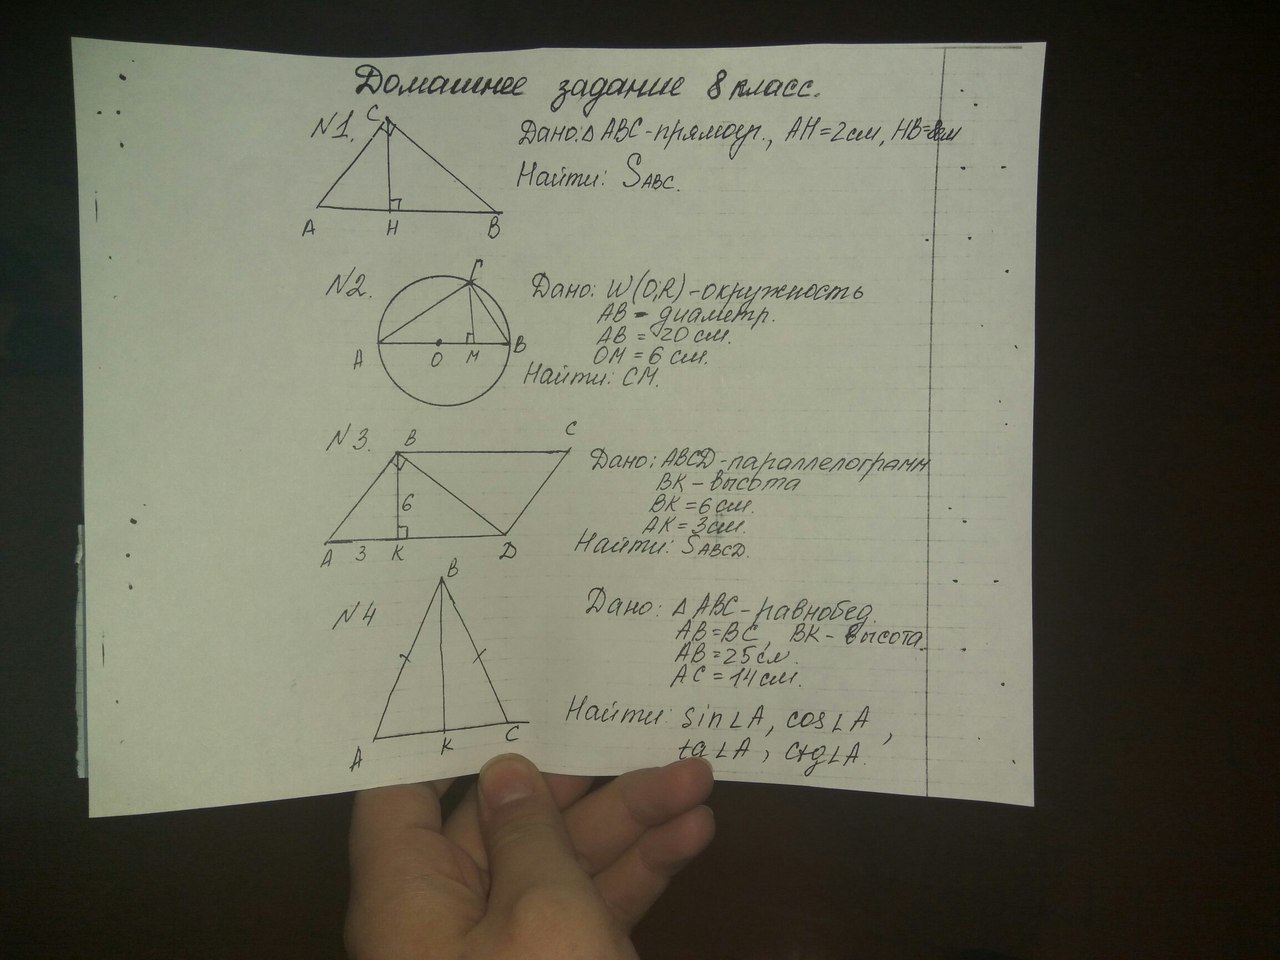 Домашнее задание 8 класс.
N1.
C
A
H
B
Дано: △ ABC - прямоуг., AH = 2 см, HB = 8 см
Найти: S ABC.
N2.
C
A
O
M
B
Дано: W(O,R) - окружность
AB - диаметр.
AB = 20 см.
OM = 6 см.
Найти: CM.
N3.
B
C
6
A
3
K
D
Дано: ABCD - параллелограмм
BK - высота
BK = 6 см.
AK = 3 см.
Найти: S ABCD.
N4
B
A
K
C
Дано: △ ABC - равнобед.
AB = BC, BK - высота.
AB = 25 см.
AC = 14 см.
Найти: sin∠A, cos∠A,
tg∠A, ctg∠A.